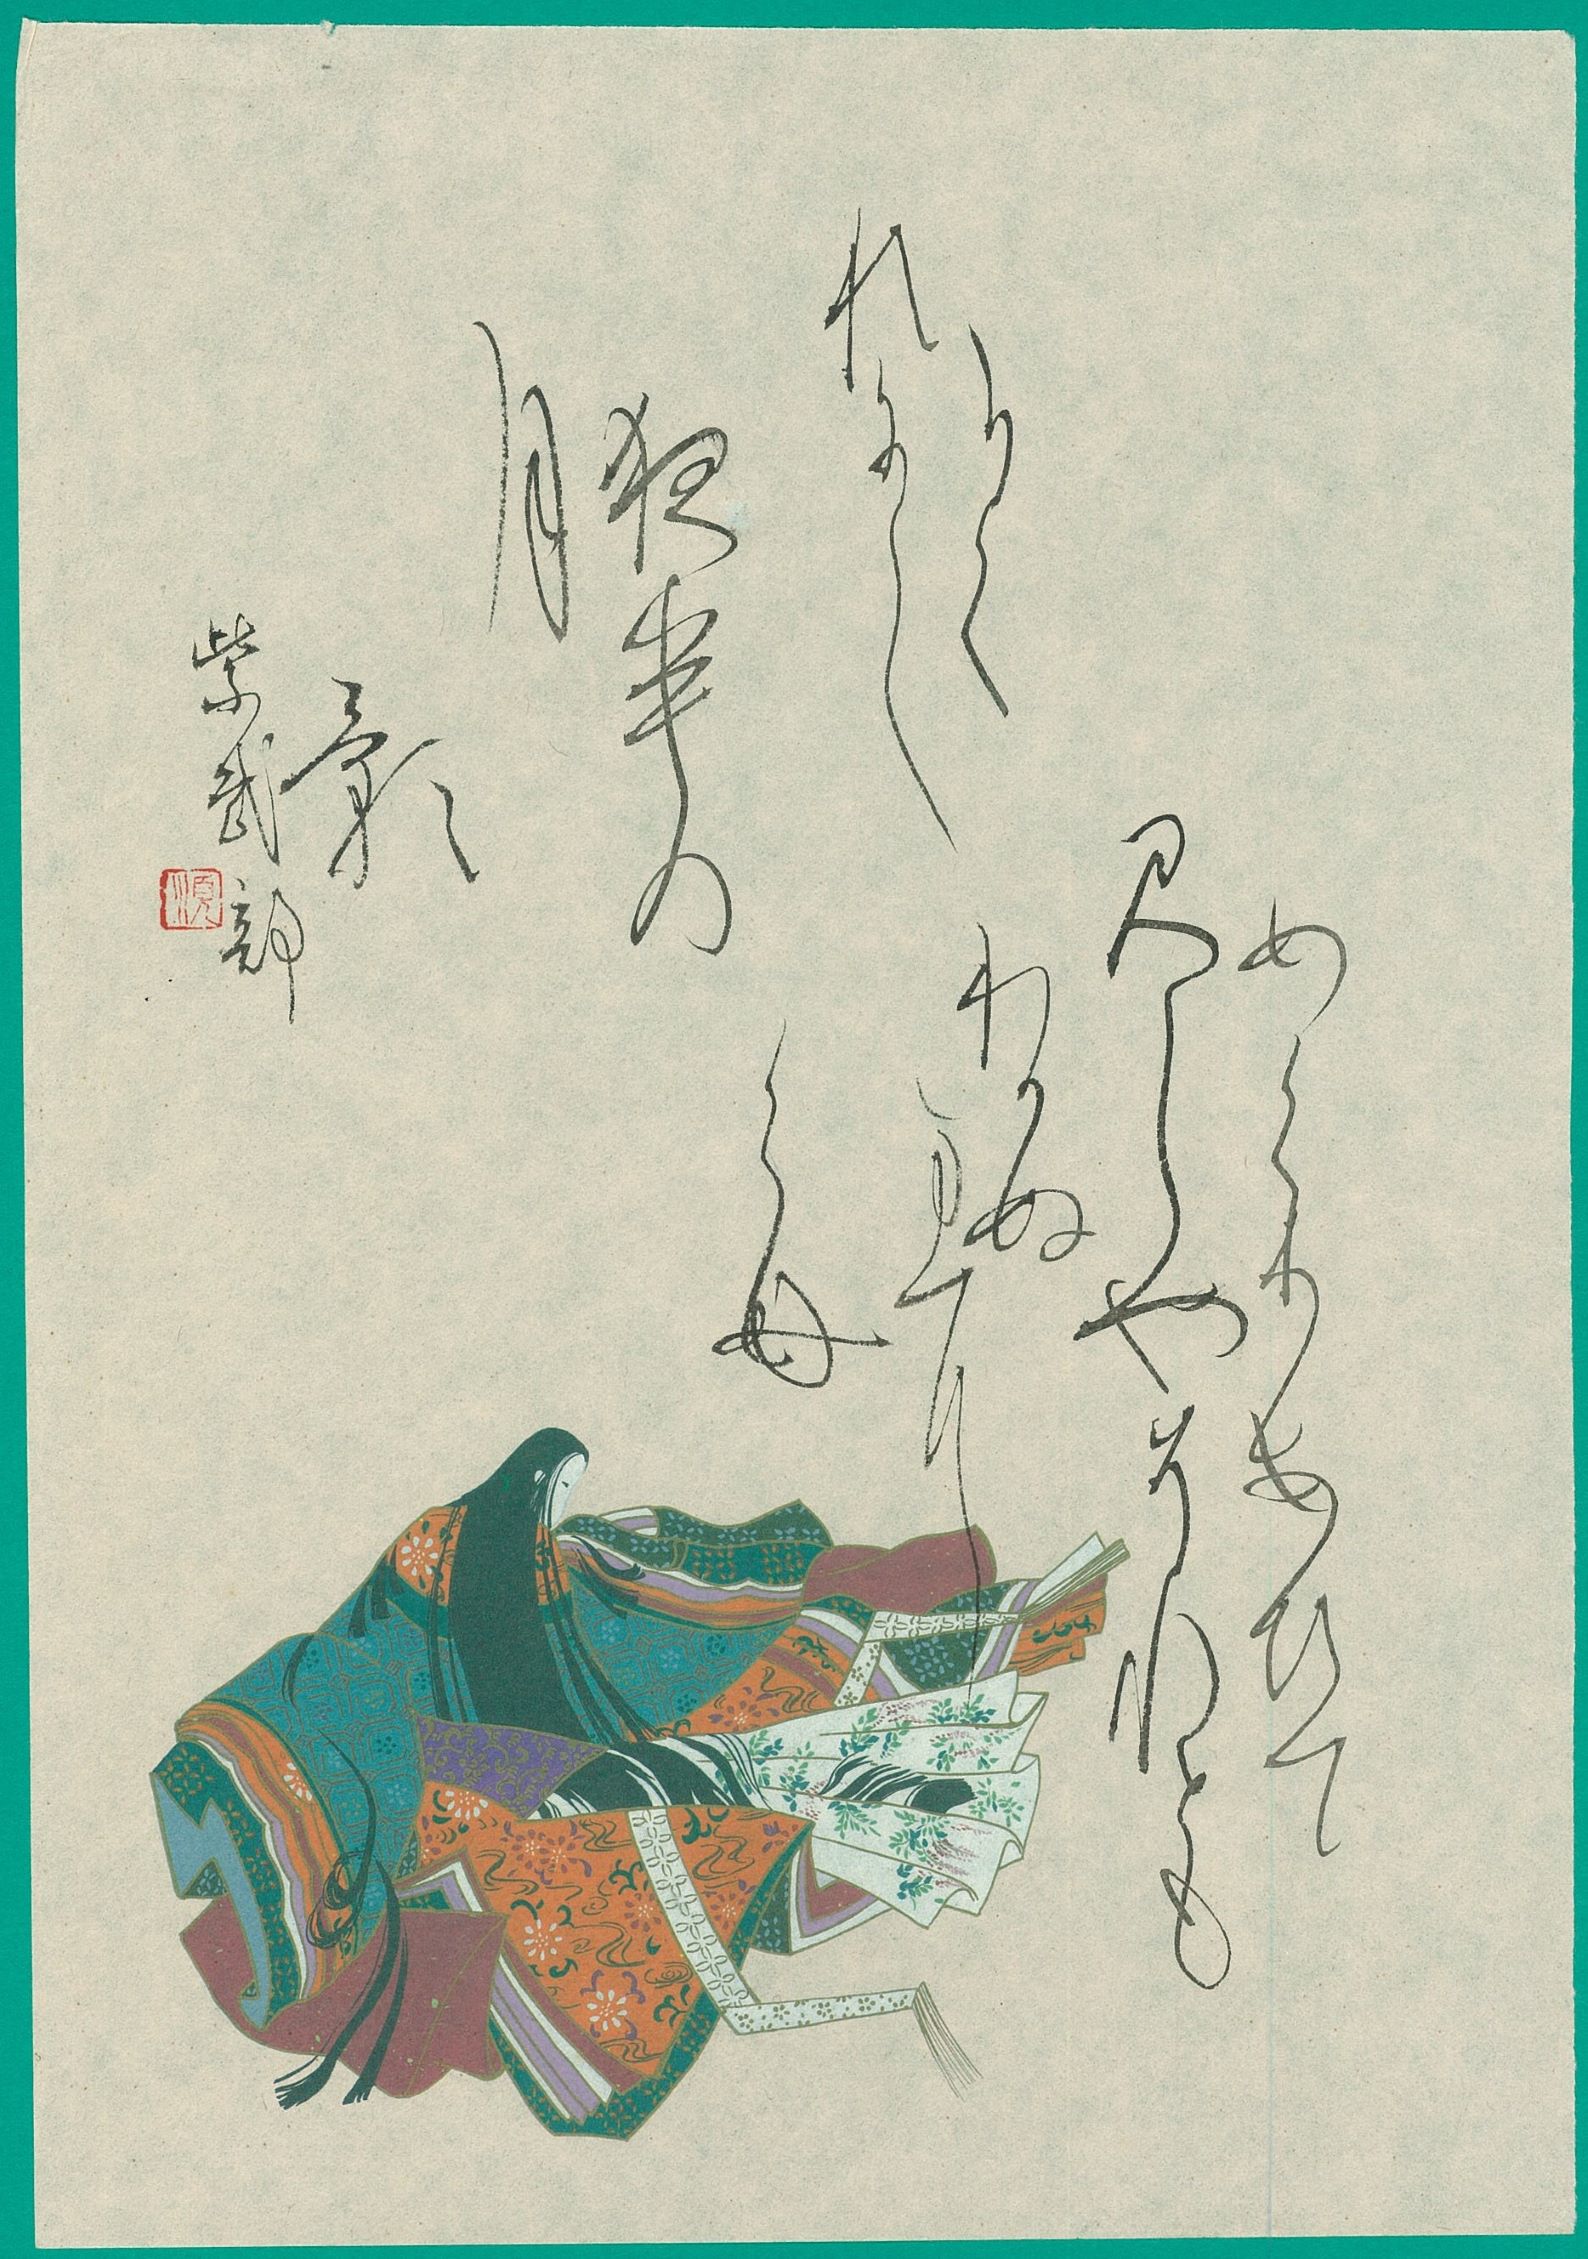 めくりあひて
見しやそれとも
わかぬ
間に
くも
かく
れにし
夜半の
月
影
紫式部